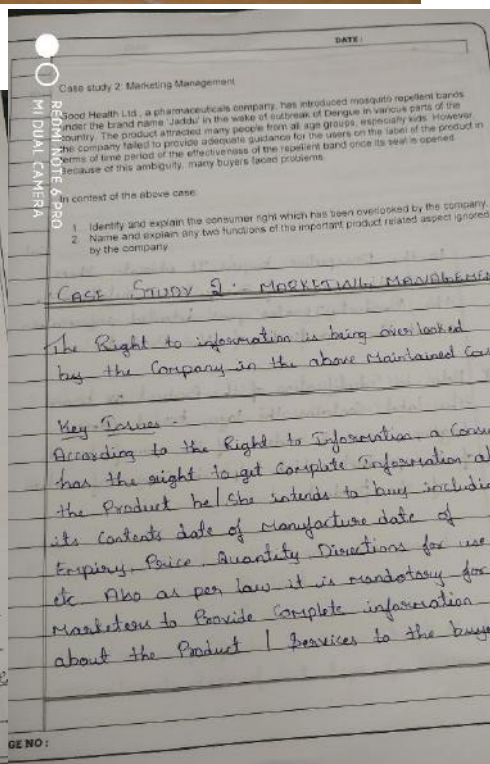 DATE:
Case study 2: Marketing Management
Good Health Ltd., a pharmaceuticals company, has introduced mosquito repellent bands
under the brand name 'Jaddu' in the wake of outbreak of Dengue in various parts of the
country. The product attracted many people from all age groups, especially kids. However
the company failed to provide adequate guidance for the users on the label of the product in
terms of time period of the effectiveness of the repellent band once its seal is opened.
Because of this ambiguity, many buyers faced problems.
In context of the above case:
1. Identify and explain the consumer right which has been overlooked by the company.
2. Name and explain any two functions of the important product related aspect ignored
by the company.
CASE STUDY 2: MARKETING MANAGEMEN
The Right to information is being overlooked
by the Company in the above Maintained Cas
Key Issues -
According to the Right to Information, a Consu
has the right to get Complete Information a
the Product he/she intends to buy includi
its Contents date of Manufacture date of
Expiry, Price, Quantity, Directions for use
etc Also as per law it is Mandatory for
Marketers to Provide Complete information
about the Product / Services to the buye
GE NO:
REDMI NOTE 6 PRO
MI DUAL CAMERA